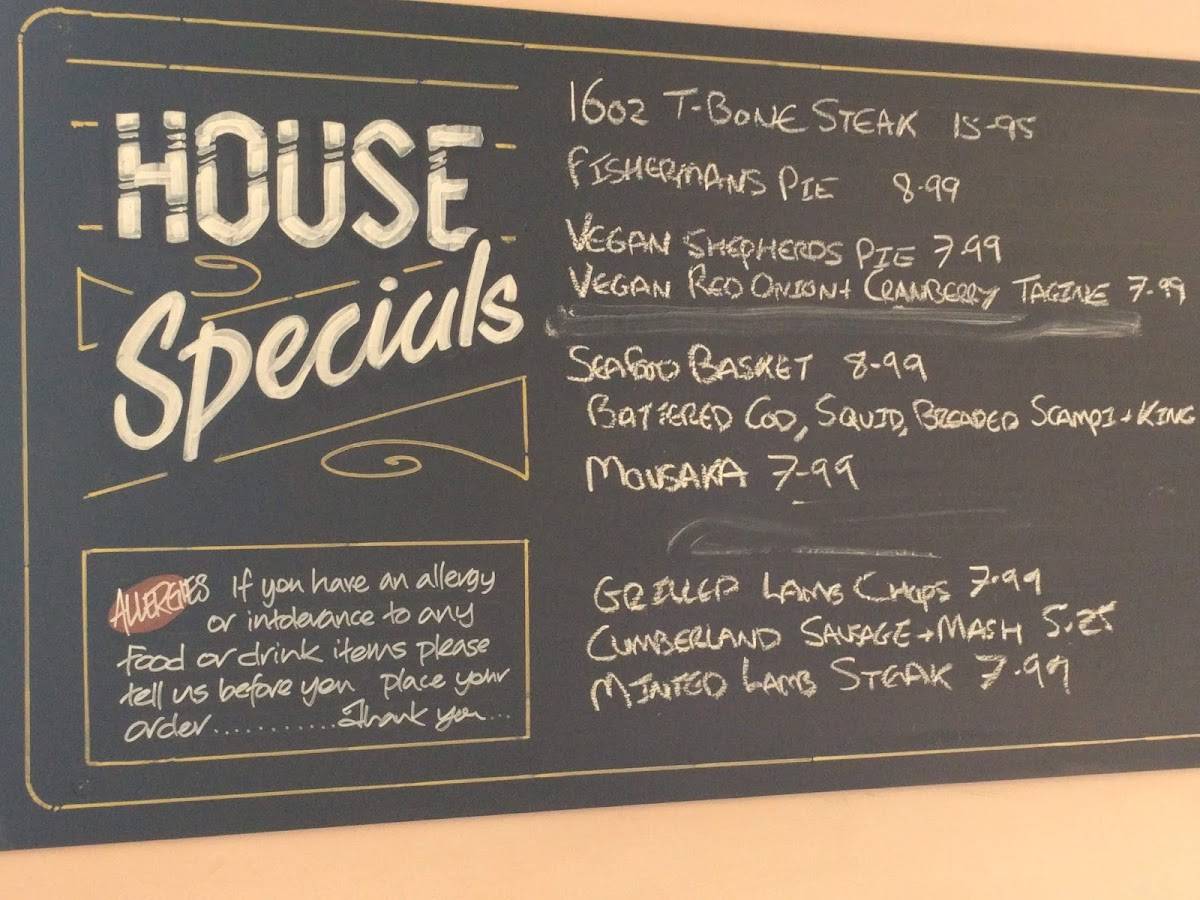 HOUSE
Specials
ALLERGIES If you have an allergy
or intolerance to any
food or drink items please
tell us before you place your
order........... Thank you...
16oz T-BONE STEAK 15-95
FISHERMANS PIE 8-99
VEGAN SHEPHERDS PIE 7-99
VEGAN RED ONION+ CRANBERRY TAGINE 7-99
SEAFOOD BASKET 8-99
BATTERED COD, SQUID, BREADED SCAMPI + KING
MOUSAKA 7-99
GRILLED LAMB CHOPS 7-99
CUMBERLAND SAUSAGE + MASH 5.25
MINTED LAMB STEAK 7-99